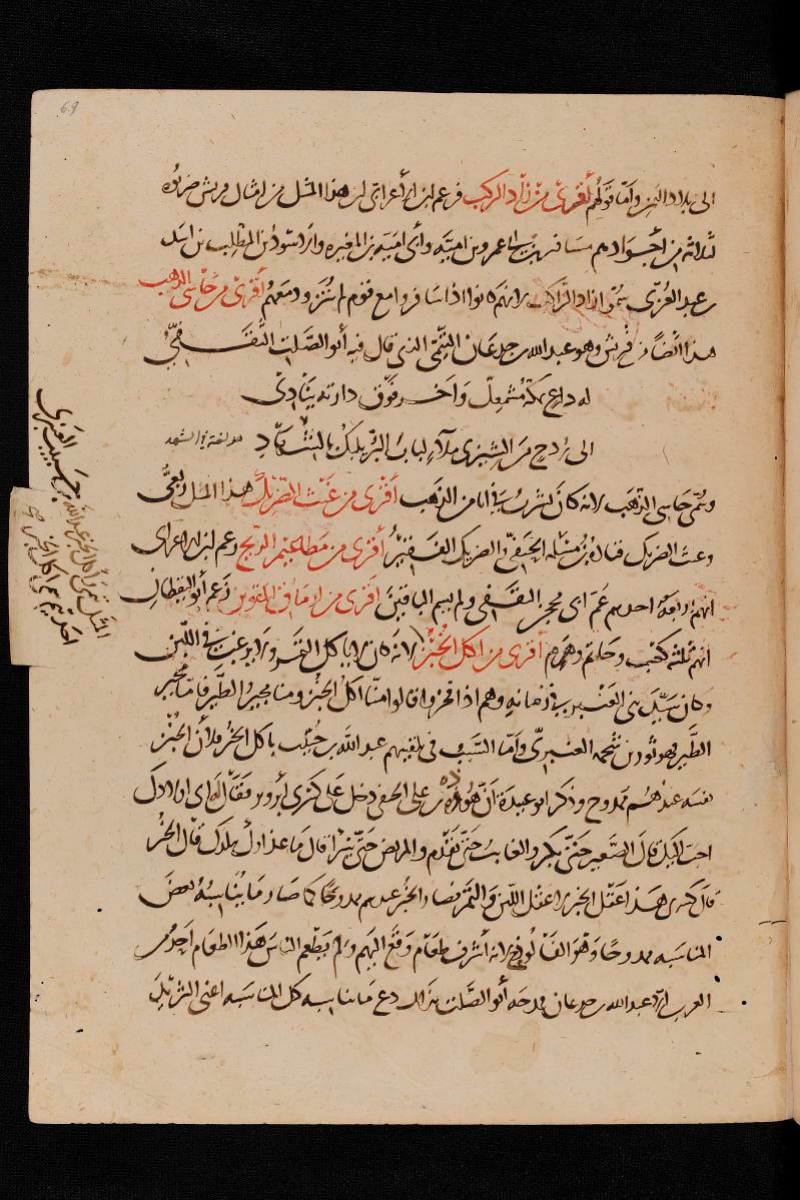 69
الى بلاد اليمن واما قولهم أقرى من زاد الركب فزعم ابن الأعرابي ان هذا المثل من امثال قريش ضربوه
لثلاثة من أجوادهم مسافر بن ابي عمرو بن امية وأبي امية بن المغيرة والاسود بن المطلب بن اسد
بن عبد العزى سموا زاد الراكب لانهم كانوا اذا سافروا مع قوم لم يتزودوا معهم أقرى من حاسي الذهب
هذا ايضا من قريش وهو عبد الله بن جدعان التيمي الذي قال فيه أبو الصلت الثقفي
له داع بمكة مشمعل وآخر فوق دارته ينادي
الى ردح من الشيزى ملاء لباب البر يلبك بالشهاد
وسمي حاسي الذهب لانه كان يشرب في انا من الذهب أقرى من غيث الضريك هذا المثل ربعي
وغيث الضريك قتادة بن مسلمة الحنفي والضريك الفقير أقرى من مطاعيم الريح زعم ابن الاعرابي
انهم اربعة احدهم عم ابي محجن الثقفي ولم يسم الباقين اقرى من ارماق المقوين زعم أبو اليقظان
انهم ثلثة كعب وحاتم وهرم أقرى من آكل الخبز لانه كان لا ياكل التمر ولا يرغب في اللبن
وكان سيد بني العنبر في زمانه وهم اذا فخروا قالوا منا آكل الخبز ومنا مجير الطير فاما مجير
الطير فهو ثوب بن شحمة العنبري واما السبب في تلقيبهم عبد الله بن حبيب باكل الخبز فلأن الخبز
نفسه عندهم ممدوح وذكر ابو عبيدة أن هوذة بن علي الحنفي دخل على كسرى أبرويز فقال له اي اولادك
احب اليك قال الصغير حتى يكبر والغائب حتى يقدم والمريض حتى يبرا قال ما غذاوك ببلدك قال الخبز
قال كسرى هذا عقل الخبز لا عقل اللبن والتمر فصار الخبز عندهم ممدوحا كما صار ما يناسبه بعض
المناسبة ممدوحا وهو الفالوذج لانه أشرف طعام وقع اليهم ولم يطعم الناس هذا الطعام أحد من
العرب الا عبد الله بن جدعان فمدحه أبو الصلت بذلك دع ما يناسبه كل المناسبة اعني الثريد
بن حبيب العنبري